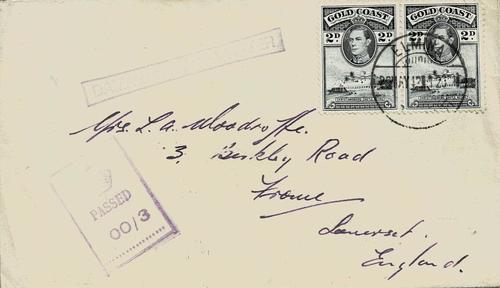 GOLD COAST
2D 2D
GOLD COAST
2D 2D
ELMINA
Mrs. L. A. Woodroffe.
3, Berkley Road
Frome
Somerset.
England.
PASSED
00/3